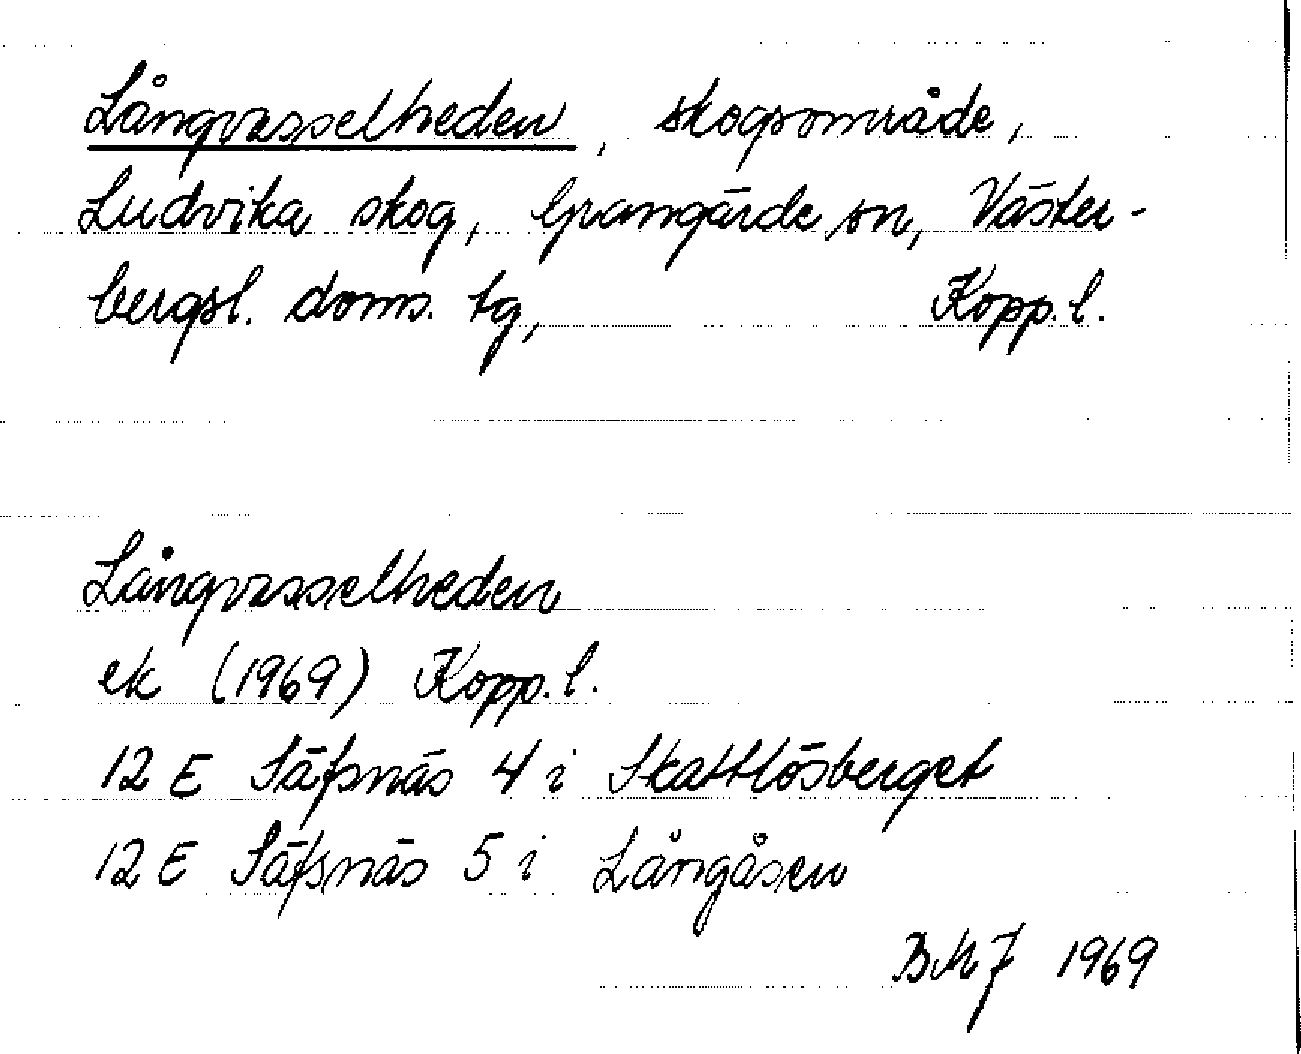 Långvasselheden, skogsområde,
Ludvika skog, Grangärde sn, Väster-
bergsl. doms. tg, Kopp. l.
Långvasselheden
ek (1969) Kopp. l.
12 E Säfsnäs 4 i Skattlösberget
12 E Säfsnäs 5 i Långåsen
BMJ 1969